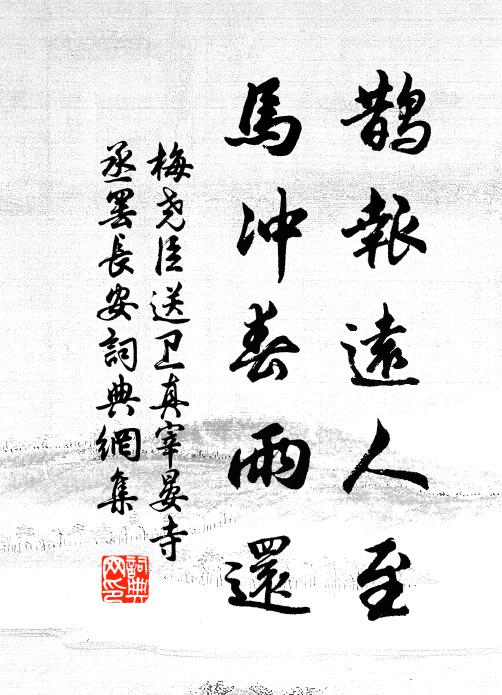 鵲報遠人至
馬沖春雨還
梅堯臣送卫真宰晏寺
丞罢長安詞典網集
詞典
网印